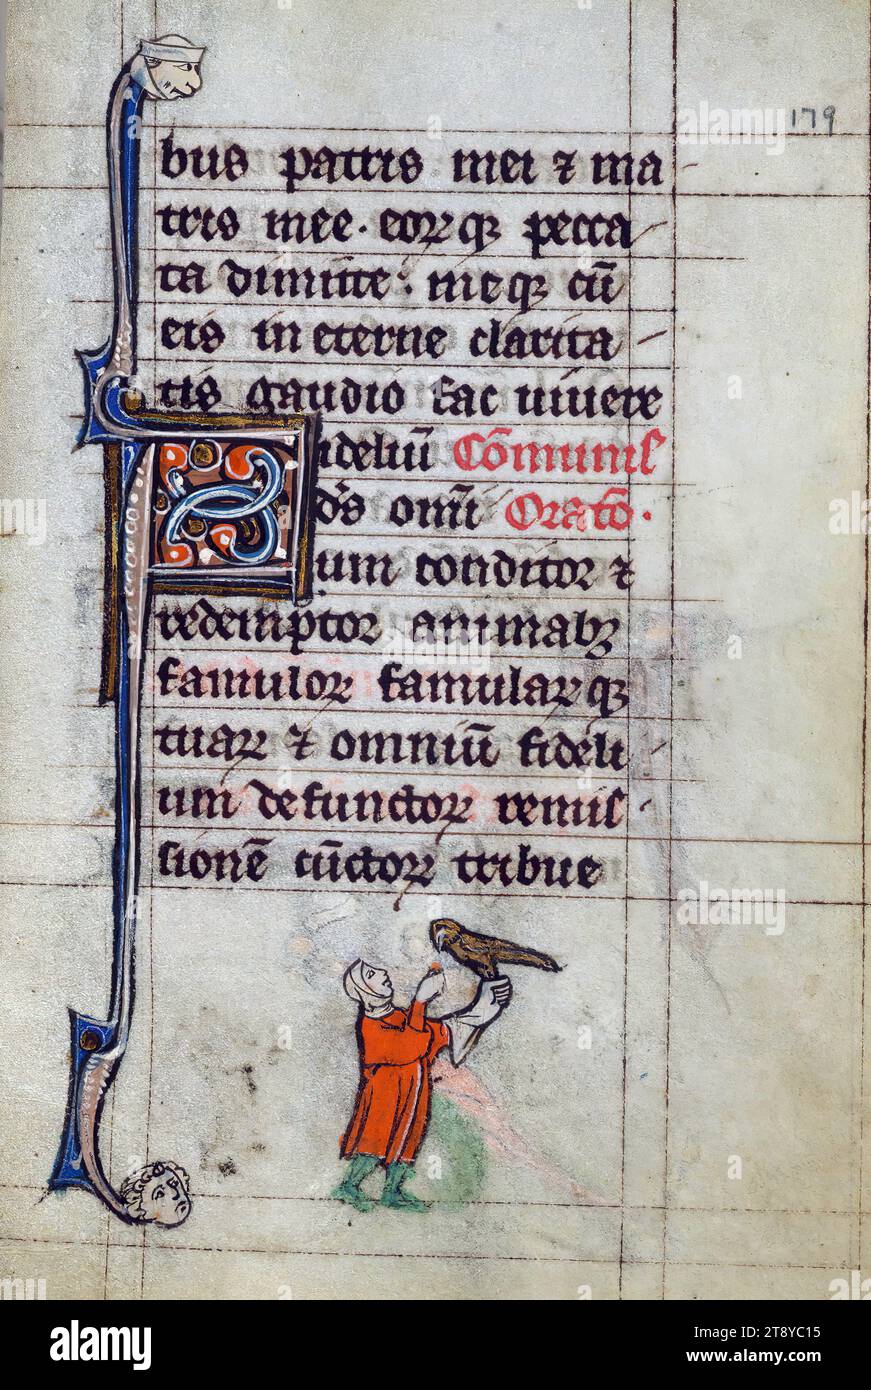 179
bus patris mei ⁊ ma
tris mee. eorꝝq̷ pecca-
ta dimitte: meq̷ cū
eis in eterne clarita-
tis gaudio fac uiuere
Fideliū Cōmunis
ds̄ omī Oratō.
um conditor ⁊
redemptor animabꝫ
famuloꝝ famulaꝝq̷
tuaꝝ ⁊ omniū fideli
um defunctoꝝ remis-
sionē cūctoꝝ tribue
alamy
Image ID: 2T8YC15
www.alamy.com